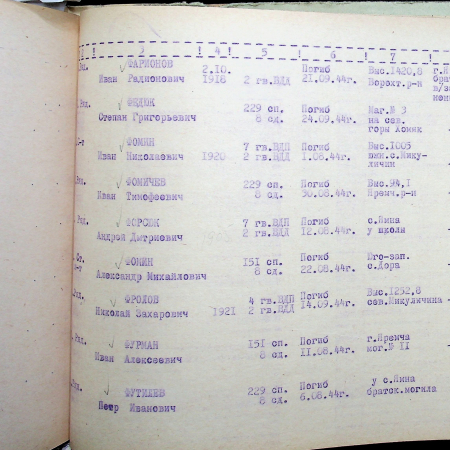 3 ! 4 ! 5 ! 6 ! 7
Ряд. ФАРИОНОВ 2.10. Погиб Выс.1420,8
Иван Радионович 1918 2 гв.ВДД 21.09.44г. Ворохт.р-н
Ряд. ФЕДЮК 229 сп. Погиб Маг.№ 3
Степан Григорьевич 8 сд. 24.09.44г. на сев.
горы Хомяк
ФОМИН 7 гв.ВДП Погиб Выс.1005
Иван Николаевич 1920 2 гв.ВДД 1.08.44г. юж.с.Мику-
личин
ФОМИЧЕВ 229 сп. Погиб Выс.94,1
Иван Тимофеович 8 сд. 30.08.44г. Яремч.р-н
Ряд. ФОРСЮК 7 гв.ВДП Погиб с.Яина
Андрей Дмтриевич 2 гв.ВДД 12.08.44г. у школы
Ст. ФОКИН 151 сп. Погиб Юго-зап.
Александр Михайлович 8 сд. 22.08.44г. с.Дора
Ряд. ФРОЛОВ 4 гв.ВДП Погиб Выс.1252,8
Николай Захарович 1921 2 гв.ВДД 14.09.44г. сев.Микуличина
Ряд. ФУРМАН 151 сп. Погиб г.Яремча
Иван Алексеевич 8 сд. 11.08.44г. мог.№ 11
Ряд. ФУТИЛЕВ 229 сп. Погиб у с.Яина
Петр Иванович 8 сд. 6.08.44г. братск.могила